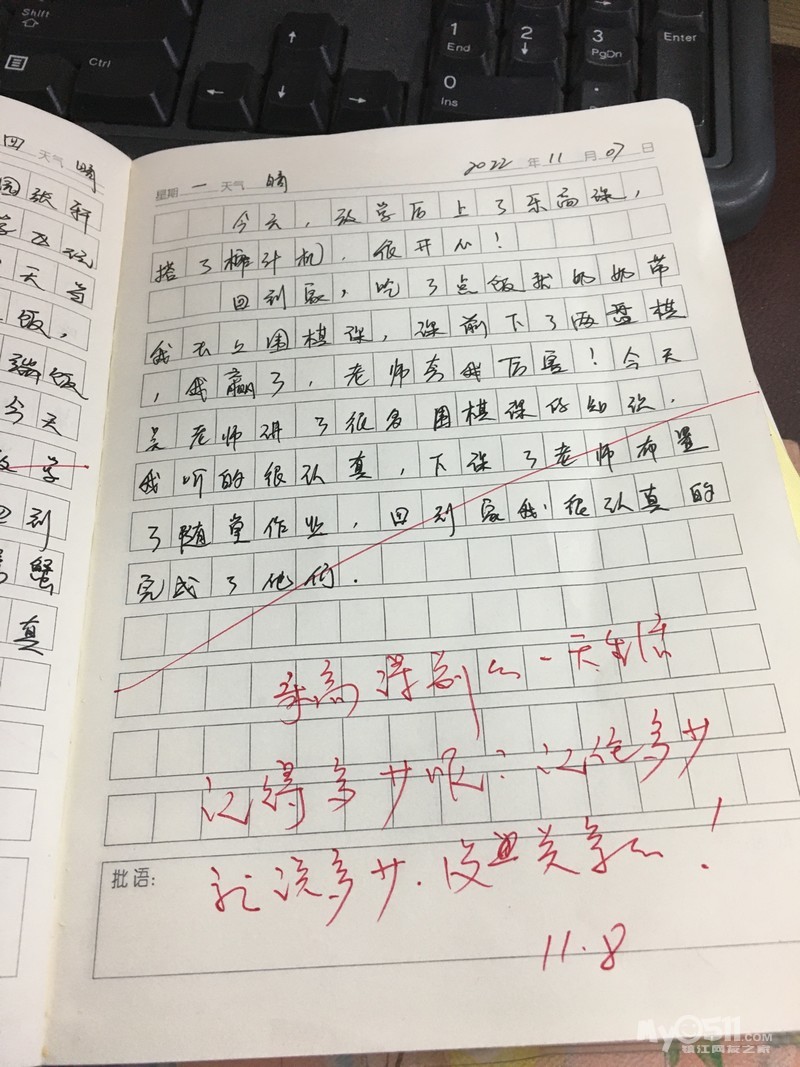 Shift
Ctrl
1
End
2
3
PgDn
Enter
0
Ins
四 天气 晴
园张轩
天当
饭,
端饭
今天
学
回到
蟹
真
星期 一 天气 晴 2022 年 11 月 07 日
今天,放学后上了乐高课,
搭了榨汁机.很开心!
回到家,吃了点饭我妈妈带
我去上围棋课,课前下了两盘棋
,我赢了,老师夸我厉害!今天
吴老师讲了很多围棋课的知识.
我听的很认真,下课了老师布置
了随堂作业,回到家我很认真的
完成了他们.
乐高 一天生活
记得多少呢?记住多少
就说多少.没关系!
批语:
11.8
My0511.COM
镇江网友之家